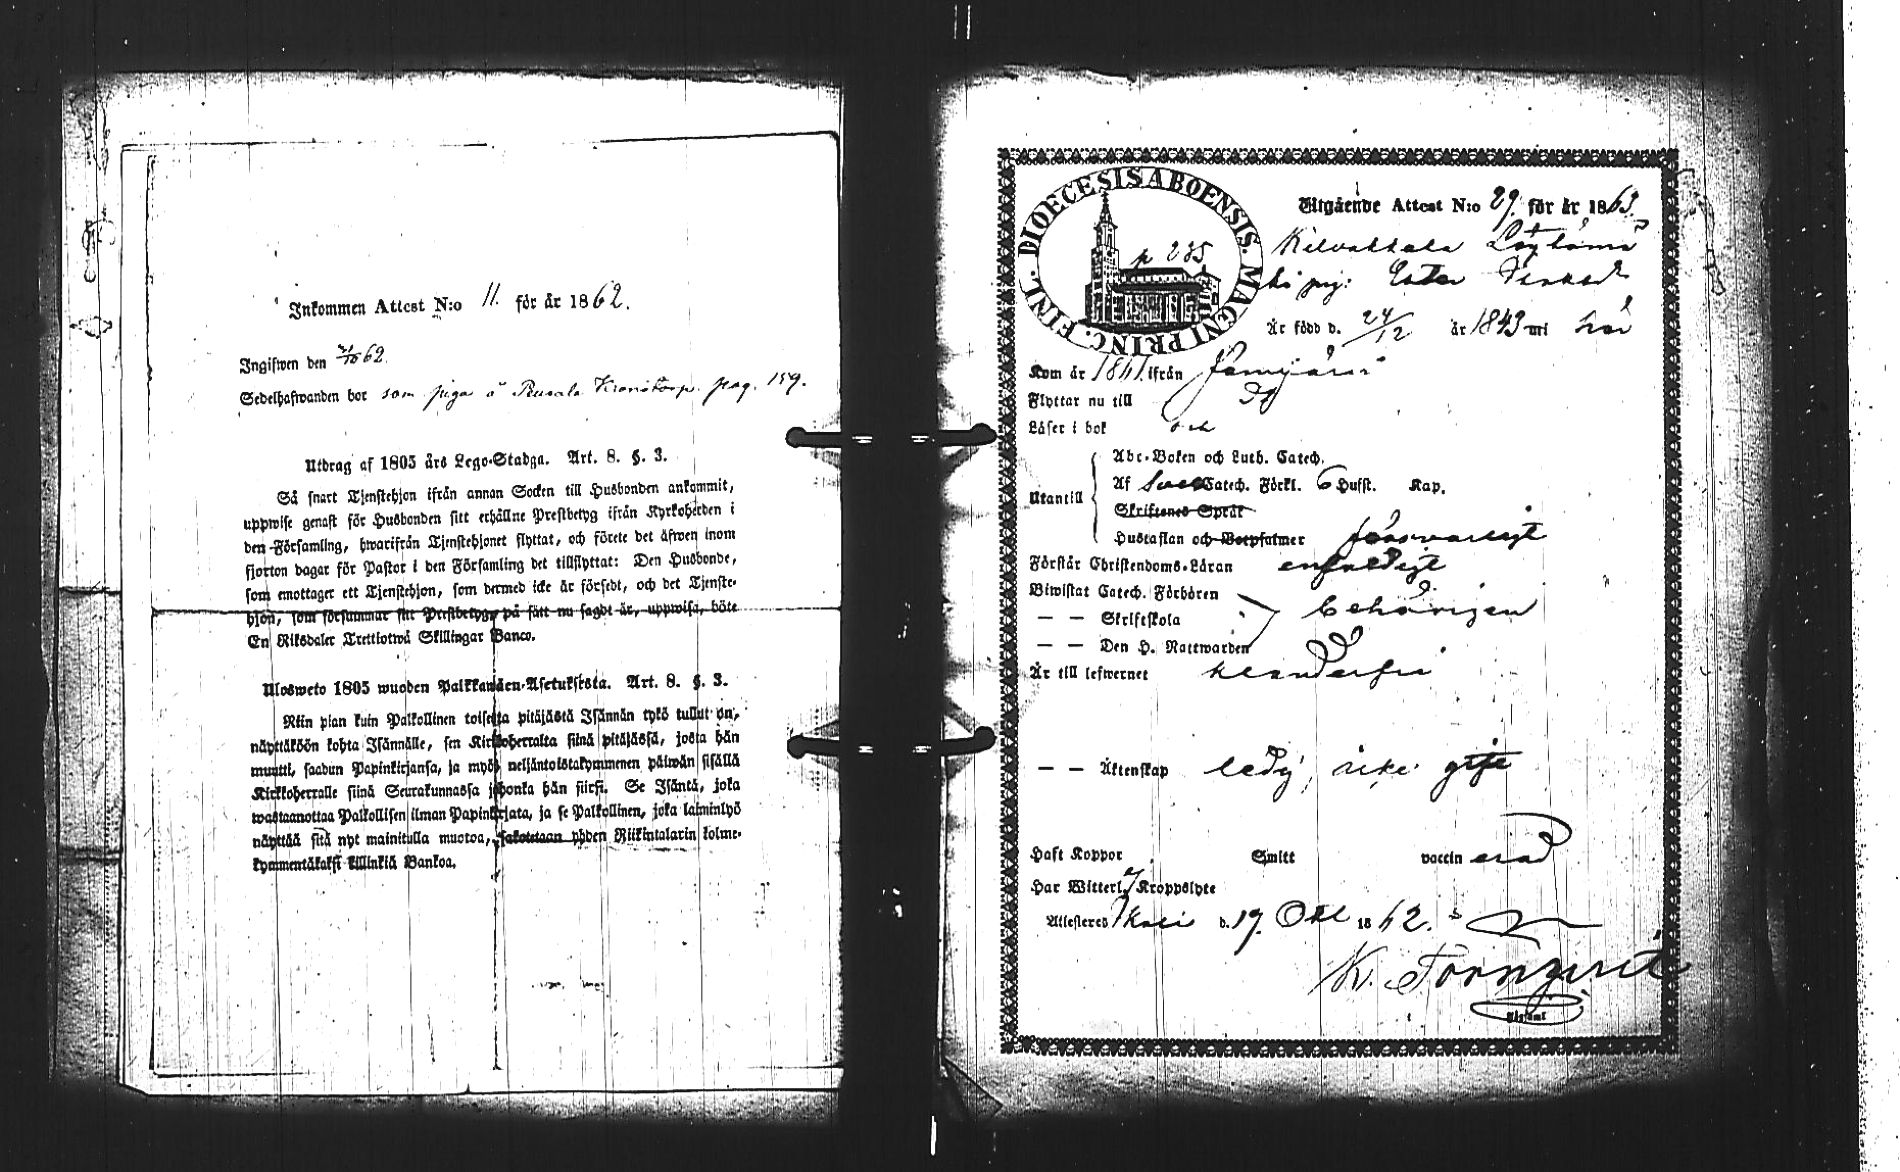 Inkommen Attest N:o 11. för år 1862.
Ingifwen den 62.
Sedelhafwanden bor som piga å Kronotorp. pag. 159.
Utdrag af 1805 års Lego-Stadga. Art. 8. §. 3.
Så snart Tjenstehjon ifrån annan Socken till Husbonden ankommit,
uppwise genast för Husbonden sitt erhållne Prestbetyg ifrån Kyrkoherden i
den Församling, hwarifrån Tjenstehjonet flyttat, och förete det äfwen inom
fjorton dagar för Pastor i den Församling det tillflyttat: Den Husbonde,
som emottager ett Tjenstehjon, som dermed icke är försedt, och det Tjenste-
hjon, som försummar sitt Prestbetyg, på sätt nu sagdt är, uppwisa, böte
En Riksdaler Trettiotwå Skillingar Banco.
Ulosweto 1805 wuoden Palkkawäen-Asetuksesta. Art. 8. §. 3.
Niin pian kuin Palkollinen toisesta pitäjästä Isännän tykö tullut on,
näyttäköön kohta Isännälle, sen Kirkkoherralta siinä pitäjässä, josta hän
muutti, saadun Papinkirjansa, ja myös neljäntoistakymmenen päiwän sisällä
Kirkkoherralle siinä Seurakunnassa johonka hän siirsi. Se Isäntä, joka
wastaanottaa Palkollisen ilman Papinkirjata, ja se Palkollinen, joka laiminlyö
näyttää sitä nyt mainitulla muotoa, sakotetaan yhden Riikintalarin kolme-
kymmentäkaksi killinkiä Bankoa.
FINL. DIOECESIS ABOENSIS. MAGNI PRINC.
p 235
Utgående Attest N:o 29. för år 1863.
Kilvakkala
pig:
Är född d. 24/12 år 1843 här
Kom år ifrån
Flyttar nu till
Läser i bok
Abc-Boken och Luth. Catech.
Utantill
Af Catech. Förkl. 6 Hufst. Kap.
Skriftenes Språk
Hustaflan och Botpsalmer försvarligt
Förstår Christendoms-Läran enfaldigt
Biwistat Catech. Förhören
— — Skriftskola behörigen
— — Den H. Nattwarden
Är till lefwernet klanderfri
— — Äktenskap ledig, icke gift
Haft Koppor Smitt vaccin erad
Har Witterl. Kroppslyte
Attesteras Ikalis d. 19. Okt 1862.
K. Törnqvist